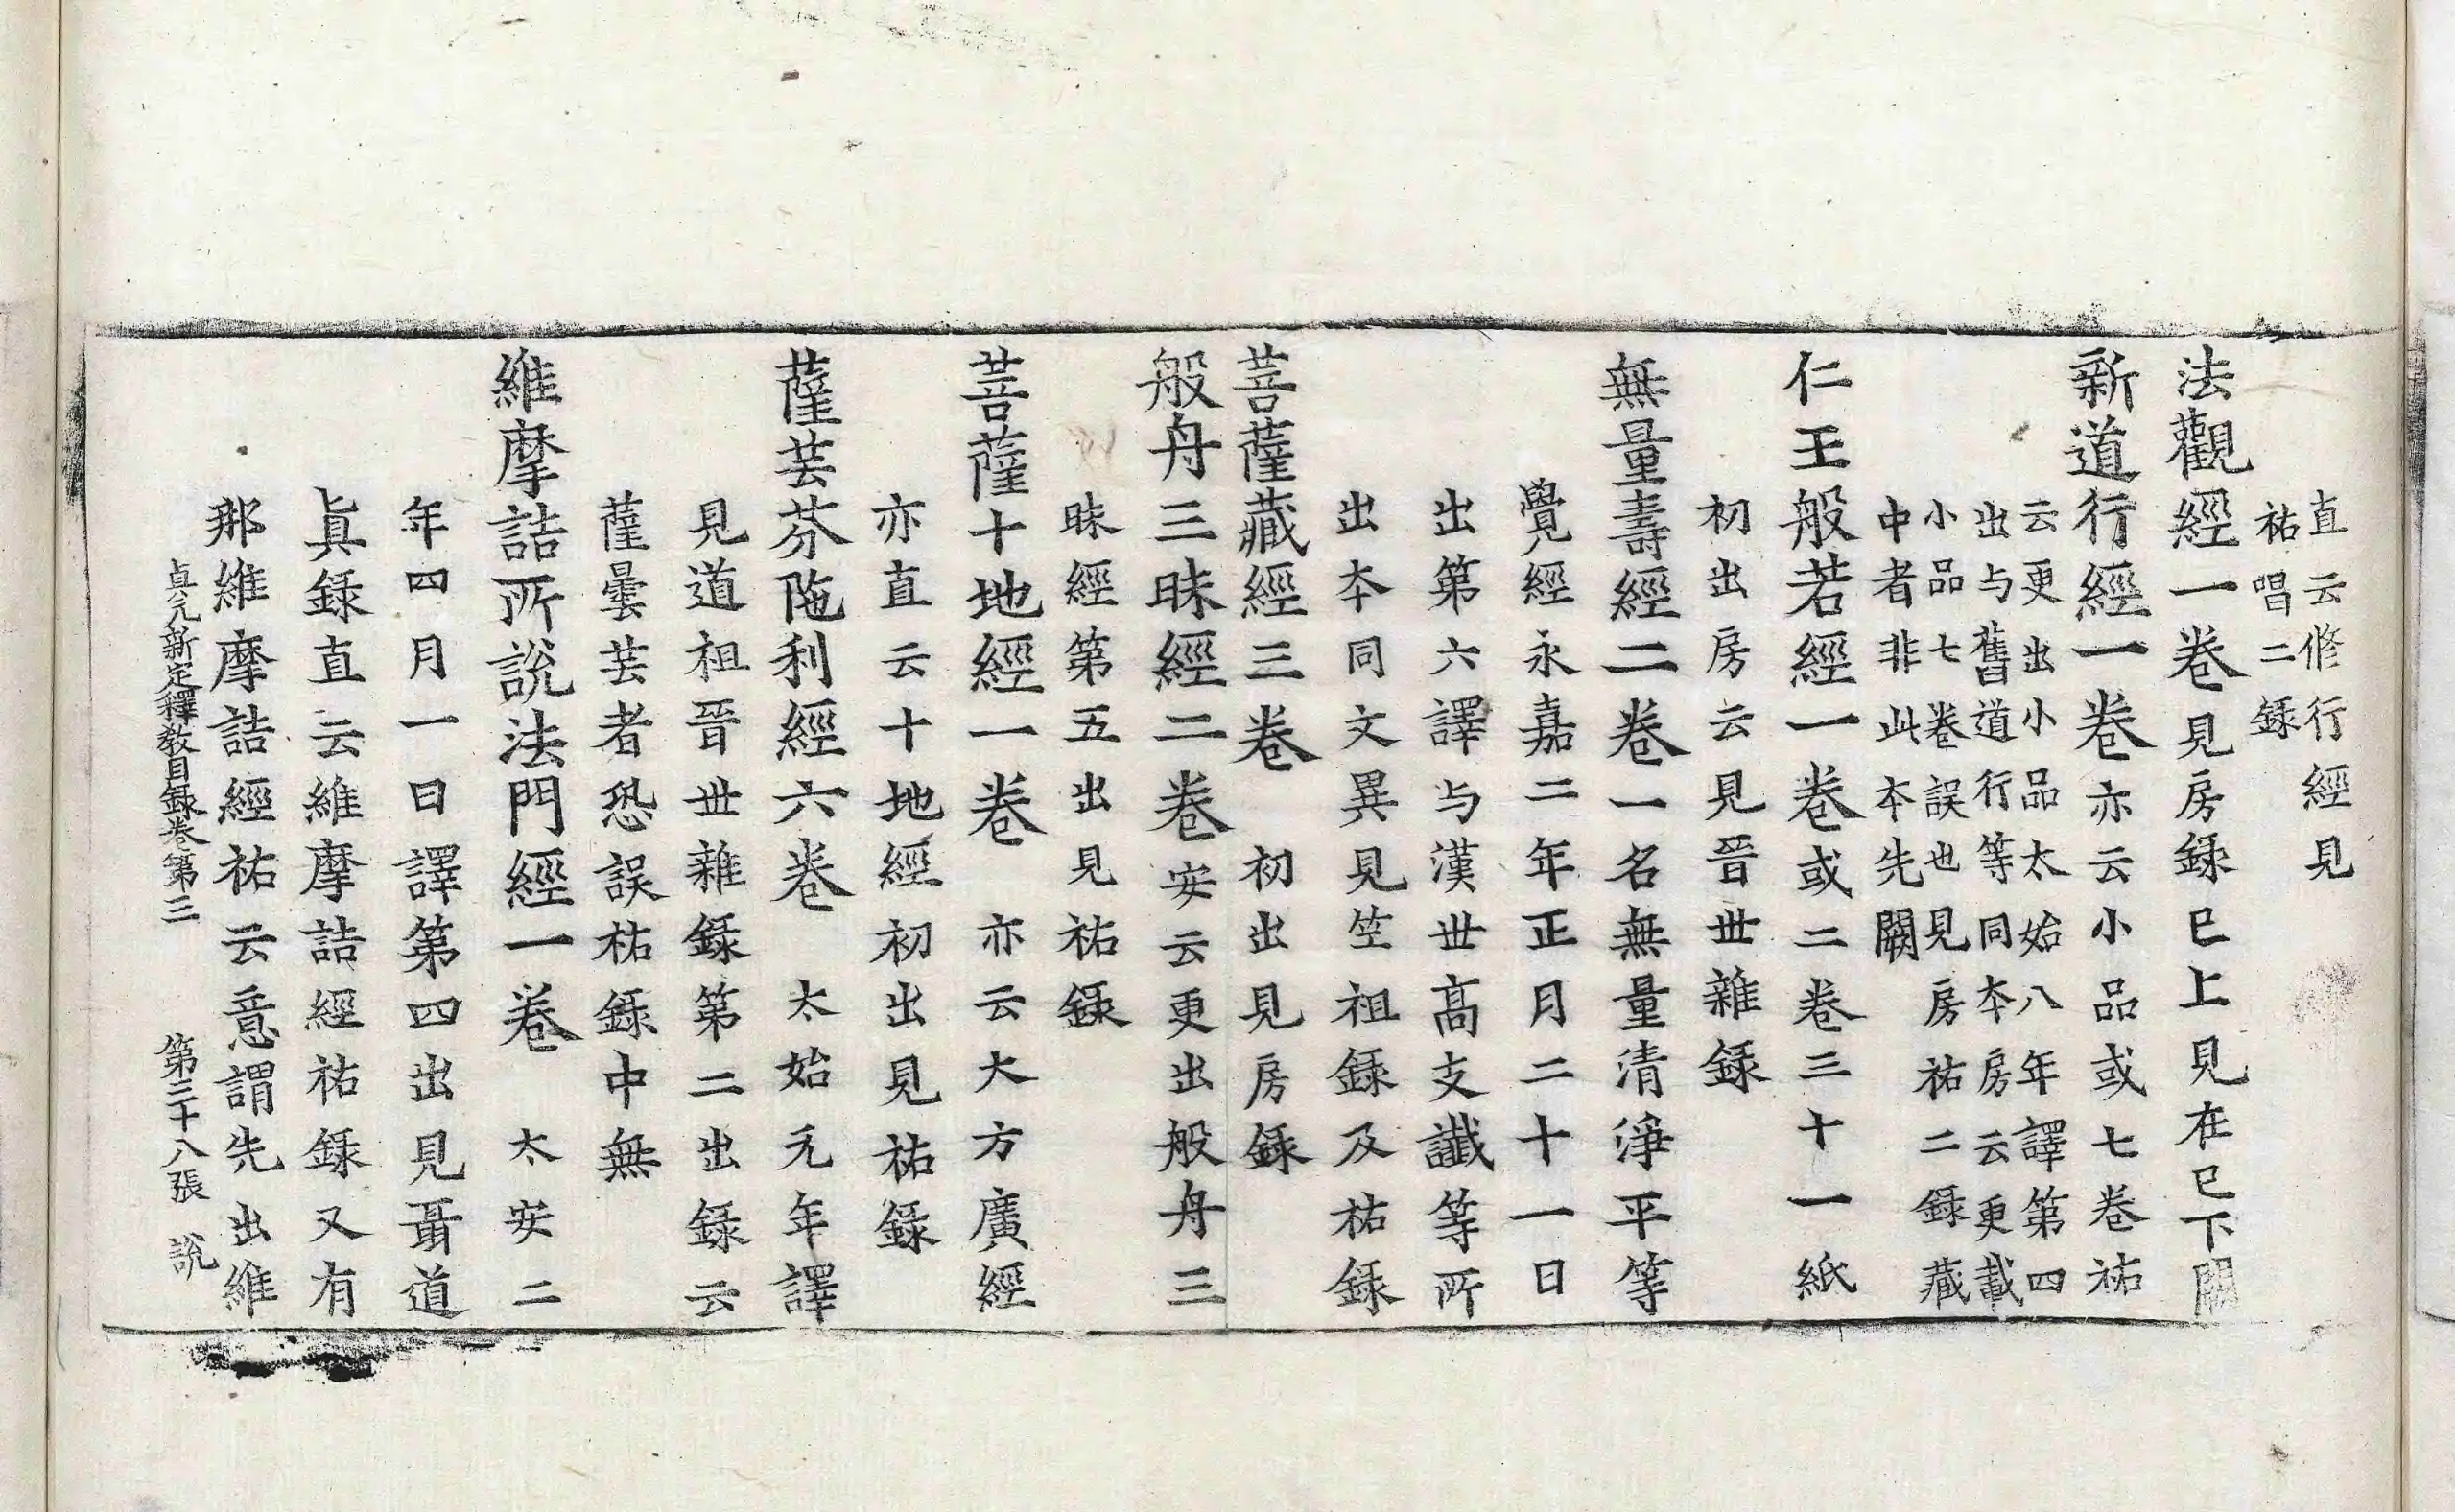 直云修行經見
祐唱二錄
法觀經一卷見房錄已上見在已下闕
新道行經一卷亦云小品或七卷祐
云更出小品太始八年譯第四
出与舊道行等同本房云更載
小品七卷誤也見房祐二錄藏
中者非此本先闕
仁王般若經一卷或二卷三十一紙
初出房云見晉世雜錄
無量壽經二卷一名無量清淨平等
覺經永嘉二年正月二十一日
出第六譯与漢世高支讖等所
出本同文異見竺祖錄及祐錄
菩薩藏經三卷初出見房錄
般舟三昧經二卷安云更出般舟三
昧經第五出見祐錄
菩薩十地經一卷亦云大方廣經
亦直云十地經初出見祐錄
薩芸芬陁利經六卷太始元年譯
見道祖晉世雜錄第二出錄云
薩曇芸者恐誤祐錄中無
維摩詰所說法門經一卷太安二
年四月一日譯第四出見聶道
眞錄直云維摩詰經祐錄又有
那維摩詰經祐云意謂先出維
貞元新定釋教目錄卷第三 第三十八張 說